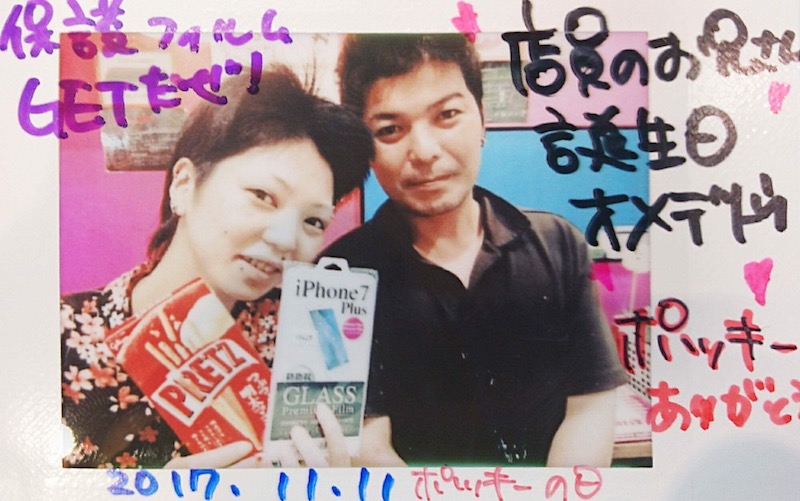 保護フィルム
GETだぜ!
店員のお兄さん
誕生日
オメデトウ
ポッキー
ありがとう
iPhone7
Plus
GLASS
Premium Film
PRETZ
2017.11.11 ポッキーの日